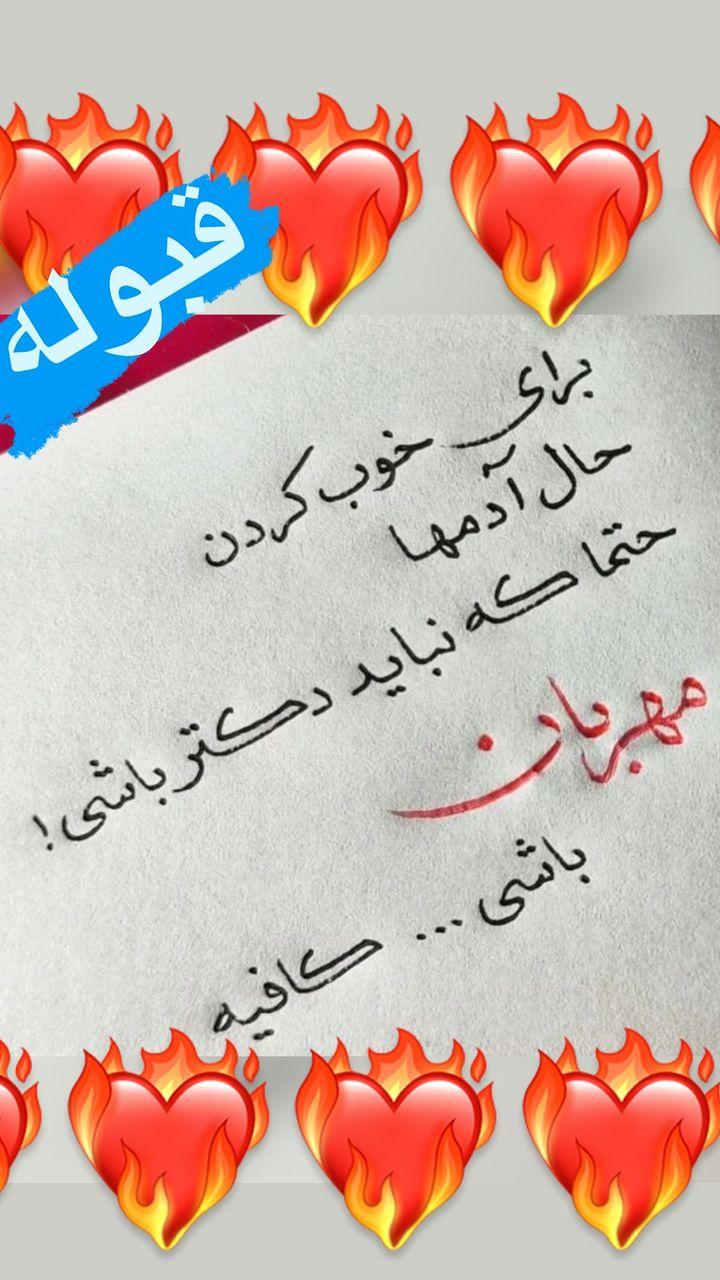 قبوله
برای خوب کردن
حال آدمها
حتما که نباید دکتر باشی!
مهربان
باشی ... کافیه